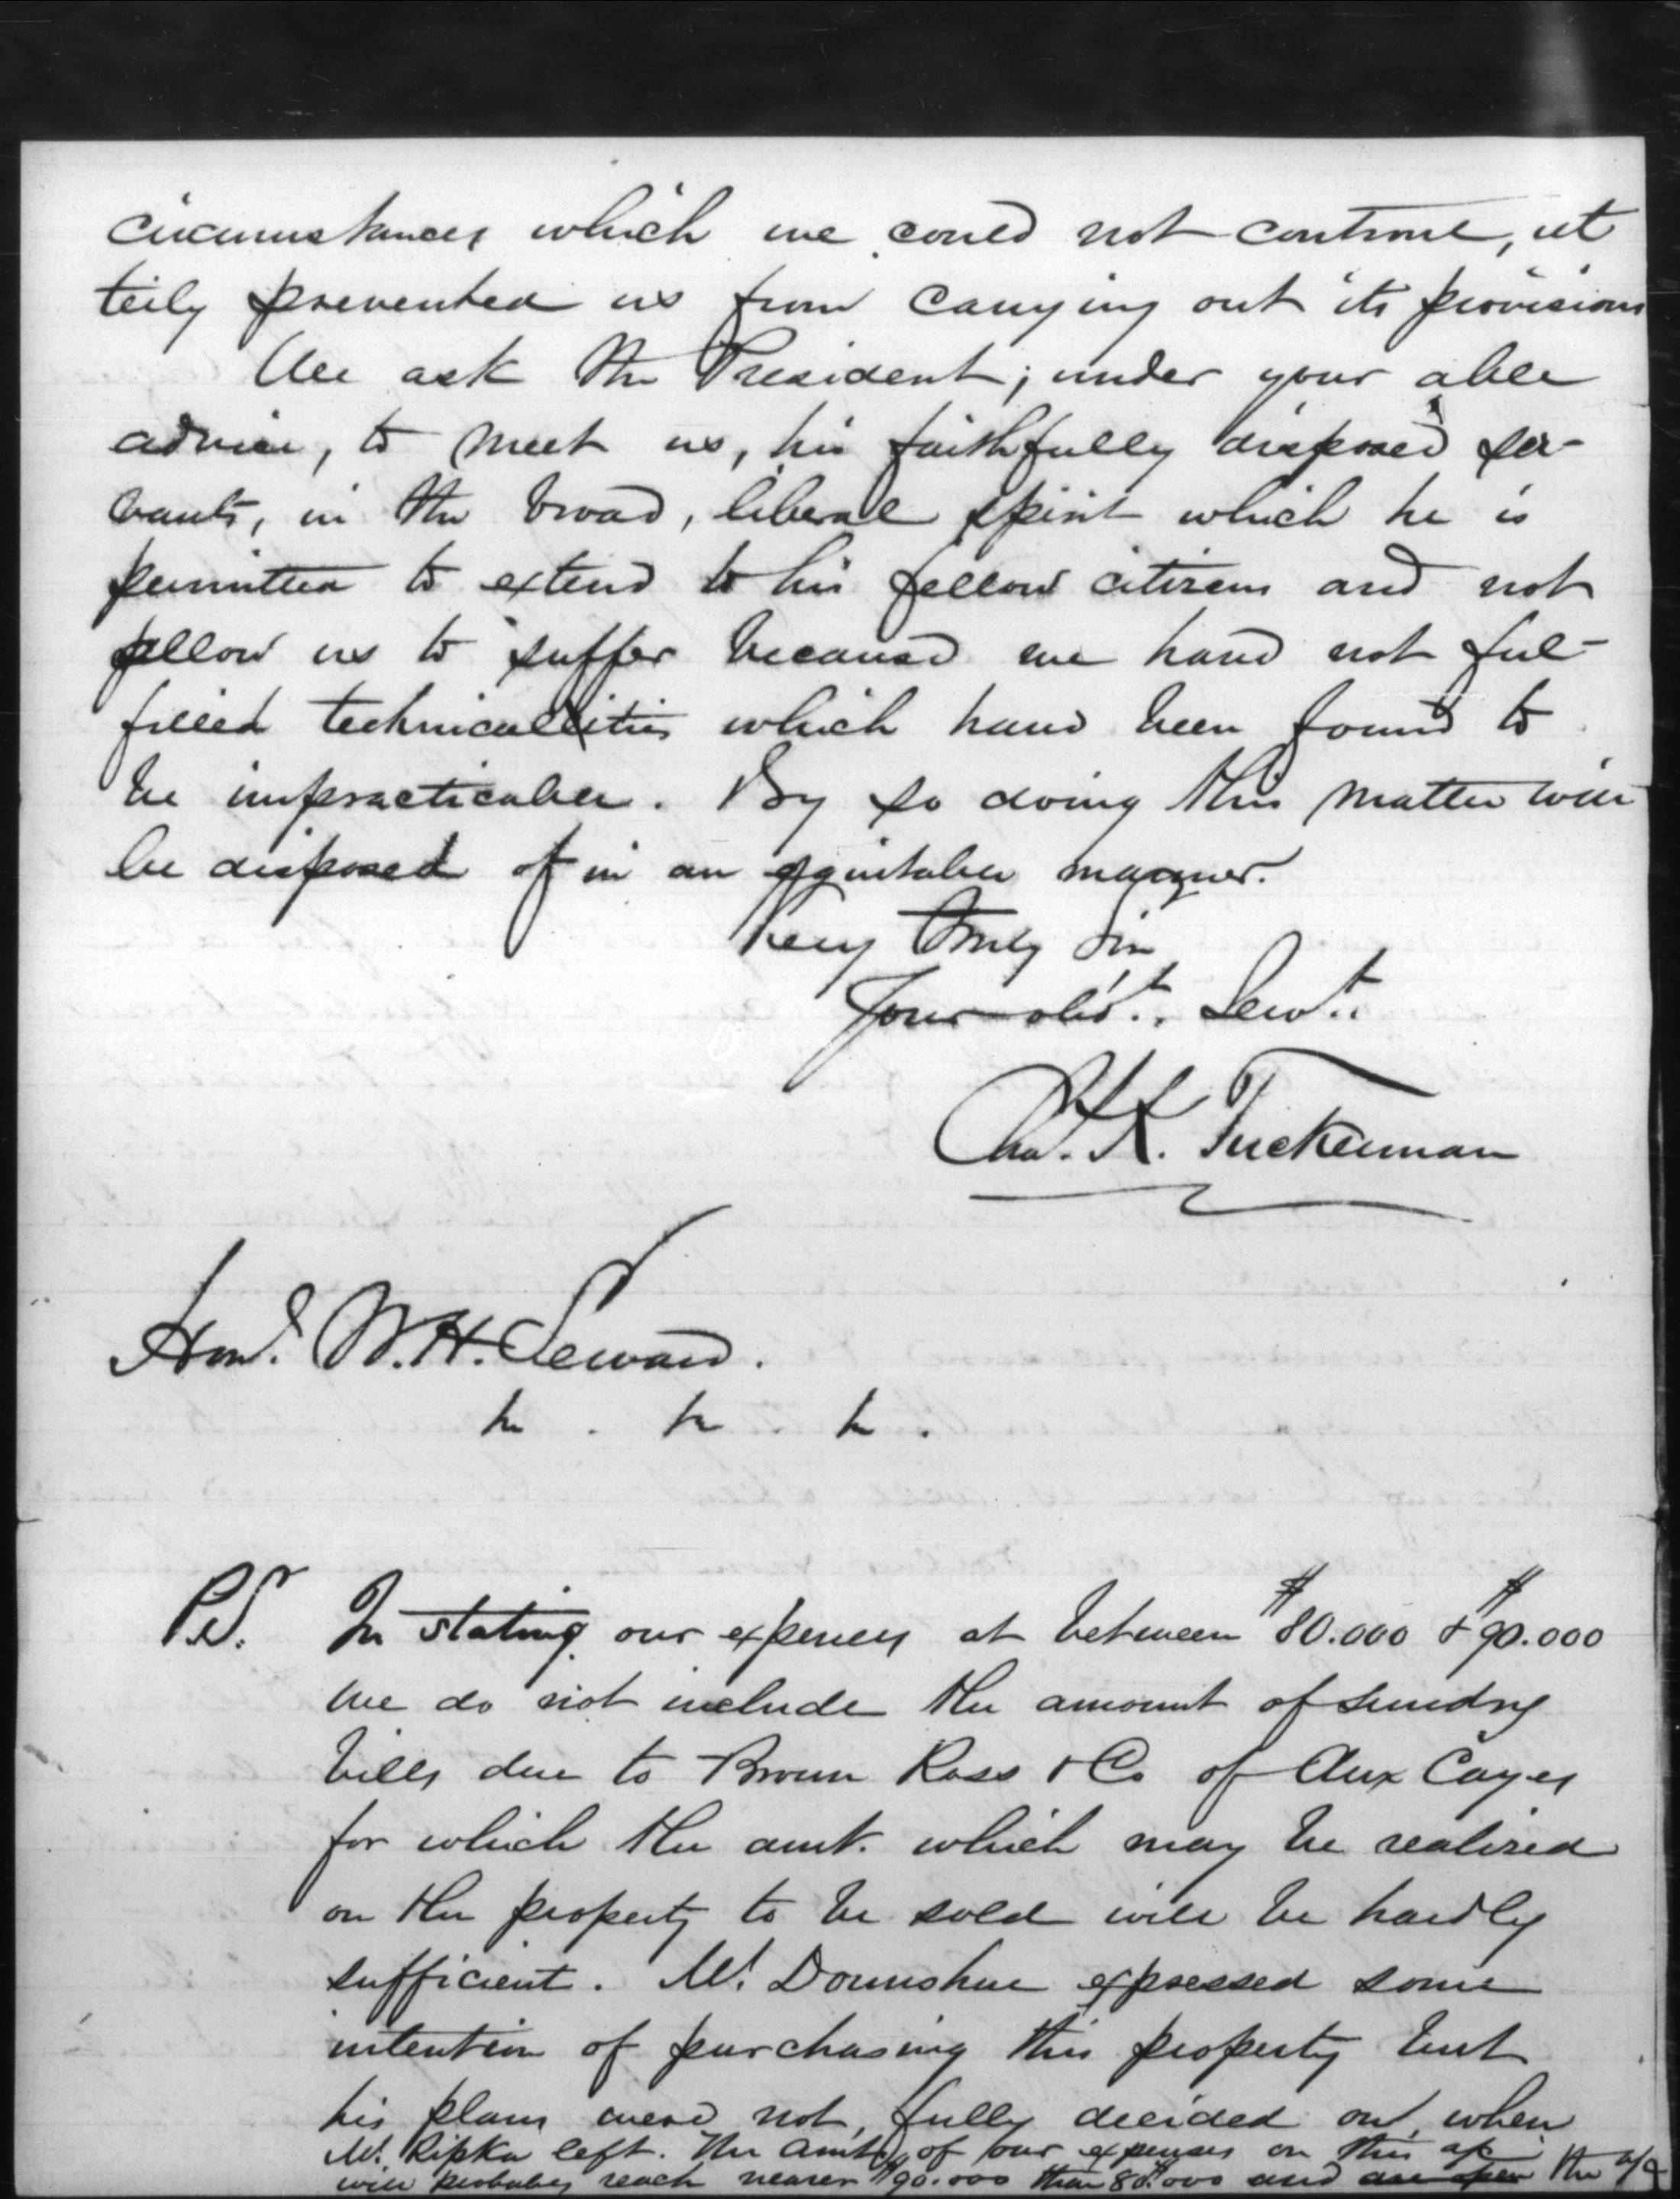 circumstances which we could not controul, ut
terly prevented us from carrying out its provisions
We ask the President; under your able
advice, to meet us, his faithfully disposed ser-
vants, in the broad, liberal spirit which he is
permitted to extend to his fellow citizens and not
allow us to suffer because we have not ful-
filled technicalities which have been found to
be impracticable. By so doing this matter will
be disposed of in an equitable manner.
Very Truly Sir
Your obdt. Servt.
Chas. K. Tuckerman
Hon. W. H. Seward.
&c . &c . &c .
P.S. In stating our expenses at between $80.000 & $90.000
we do not include the amount of sundry
bills due to Brown Ross & Co of Aux Cayes
for which the amt. which may be realized
on the property to be sold will be hardly
sufficient. Mr. Donnohue expressed some
intention of purchasing this property but
his plans were not fully decided on when
Mr. Ripka left. The amt. of our expenses on this a/c
will probably reach nearer $90.000 than $80.000 and the a/c